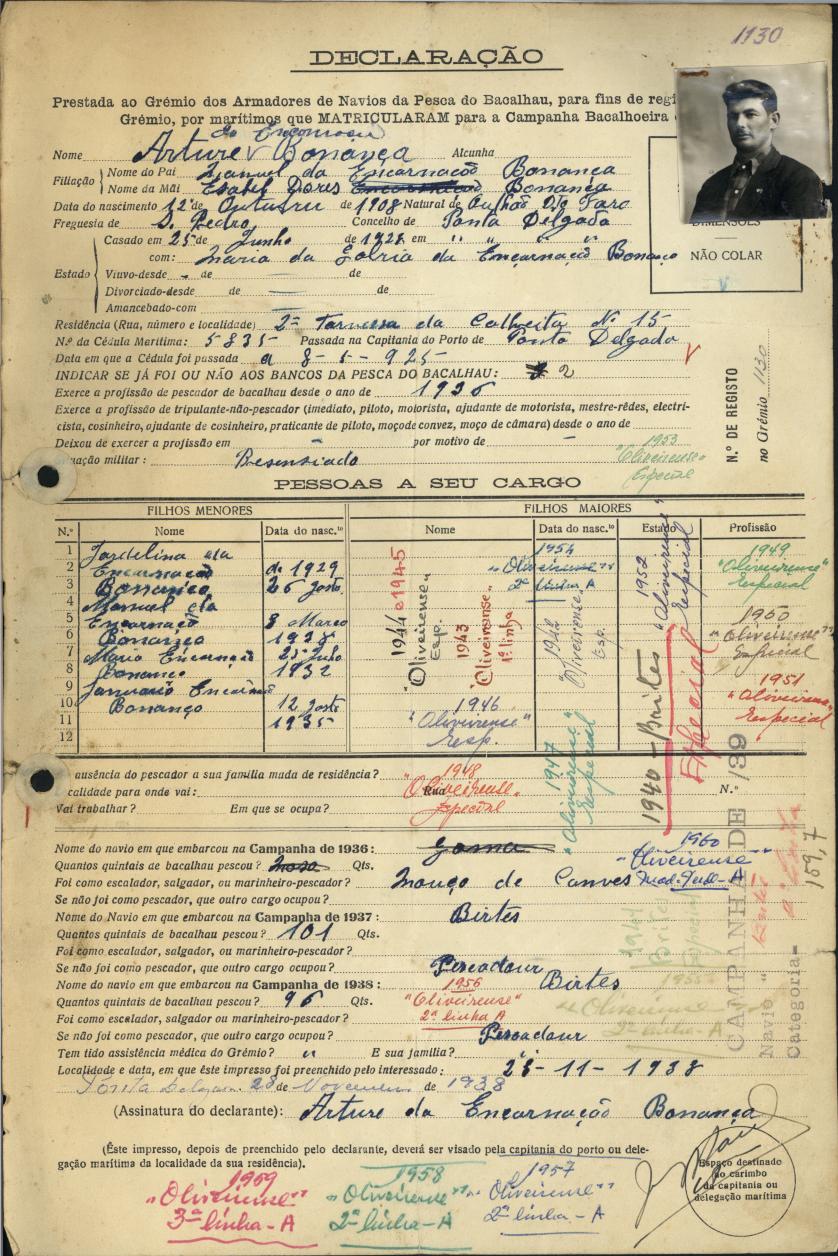 1130
DECLARAÇÃO
Prestada ao Grémio dos Armadores de Navios da Pesca do Bacalhau, para fins de regi
Grémio, por marítimos que MATRICULARAM para a Campanha Bacalhoeira
da Encarnação
Nome Arture Bonança Alcunha
Filiação Nome do Pai Manuel da Encarnação Bonança
Nome da Mãi Esabel Dores Bonança
Data do nascimento 12 de Outuvru de 1908 Natural de Oulhão De Faro
Freguesia de S. Pedro Concelho de Ponta Delgada
DIMENSÕES
NÃO COLAR
Casado em 25 de Junho de 1928 em " " " "
com: Maria da da Encarnação Bonanço
Estado Viuvo-desde - de de
Divorciado-desde de de
Amancebado-com
Residência (Rua, número e localidade) 2ª da Calheita Nº 15
N.º da Cédula Marítima: 5835 Passada na Capitania do Porto de Ponta Delgada
Data em que a Cédula foi passada a 8-1-925
INDICAR SE JÁ FOI OU NÃO AOS BANCOS DA PESCA DO BACALHAU: 2
Exerce a profissão de pescador de bacalhau desde o ano de 1936
Exerce a profissão de tripulante-não-pescador (imediato, piloto, motorista, ajudante de motorista, mestre-rêdes, electri-
cista, cosinheiro, ajudante de cosinheiro, praticante de piloto, moço de convez, moço de câmara) desde o ano de
Deixou de exercer a profissão em - por motivo de -
uação militar:
N.º DE REGISTO
no Grémio 1130
1953
"Oliveirense"
Especial
PESSOAS A SEU CARGO
FILHOS MENORES FILHOS MAIORES
N.º Nome Data do nasc.to Nome Data do nasc.to Estado Profissão
1 Jordelina da
2 Encarnação de 1929
3 Bonanço 26
4 Manuel da
5 Encarnação 8 Março
6 Bonanço
7 Mario Encarnação 25 Julho
8 Bonanço 1932
9 Januario
10 Bonanço 12
11 1935
12
1944 e 1945
"Oliveirense"
Esp.
1943
"Oliveirense"
1ª linha
1954
"Oliveirense"
2ª linha A
1942
"Oliveirense"
Esp.
1946
"Oliveirense"
Esp.
1947
"Oliveirense"
Especial
1952
"Oliveirense"
Especial
1940 - Brites
Especial
1949
"Oliveirense"
Especial
1950
"Oliveirense"
Especial
1951
"Oliveirense"
Especial
ausência do pescador a sua família muda de residência?
calidade para onde vai: Rua N.º
Vai trabalhar? Em que se ocupa?
1948
"Oliveirense"
Especial
Nome do navio em que embarcou na Campanha de 1936:
Quantos quintais de bacalhau pescou? Qts.
Foi como escalador, salgador, ou marinheiro-pescador? Monço de Canves
Se não foi como pescador, que outro cargo ocupou?
1960
"Oliveirense"
Nome do Navio em que embarcou na Campanha de 1937: Birtes
Quantos quintais de bacalhau pescou? 101 Qts.
Foi como escalador, salgador, ou marinheiro-pescador?
Se não foi como pescador, que outro cargo ocupou? Pescadour
Nome do navio em que embarcou na Campanha de 1938: Birtes
Quantos quintais de bacalhau pescou? 96 Qts.
Foi como escalador, salgador, ou marinheiro-pescador?
Se não foi como pescador, que outro cargo ocupou? Pescadour
1956
"Oliveirense"
2ª linha A
1941
Brites
Especial
1955
"Oliveirense"
2ª linha-A
CAMPANHA DE /39
Navio "Brites"
Categoria-
159,7
Tem tido assistência médica do Grémio? " E sua família? "
Localidade e data, em que êste impresso foi preenchido pelo interessado: 28-11-1938
Ponta Delgada 28 de Novembro de 1938
(Assinatura do declarante): Arture da Encarnação Bonança
(Êste impresso, depois de preenchido pelo declarante, deverá ser visado pela capitania do porto ou dele-
gação marítima da localidade da sua residência).
Espaço destinado
ao carimbo
da capitania ou
delegação marítima
1959
"Oliveirense"
3ª linha-A
1958
"Oliveirense"
2ª linha-A
1957
"Oliveirense"
2ª linha-A